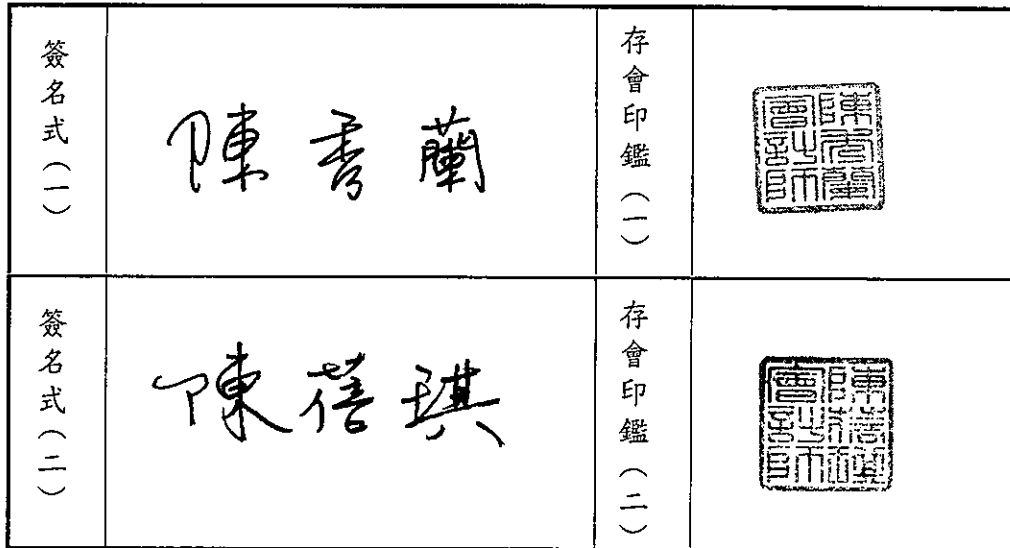 簽名式(一)
陳秀蘭
存會印鑑(一)
陳秀蘭
會計師
簽名式(二)
陳蓓琪
存會印鑑(二)
陳蓓琪
會計師